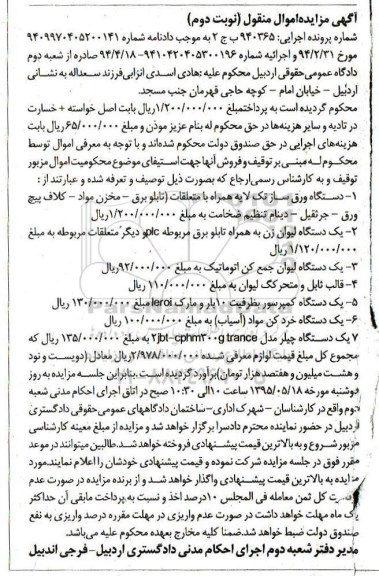 آگهی مزایده اموال منقول (نوبت دوم)
شماره پرونده اجرایی: ۹۴۰۳۶۵ ب ج ۲ به موجب دادنامه شماره ۹۴۰۹۹۷۰۴۰۵۲۰۰۱۴۱
مورخ ۹۴/۲/۳۱ و اجرائیه شماره ۹۴۱۰۴۲۰۴۰۵۳۰۰۱۹۶-۹۴/۴/۱۸ صادره از شعبه دوم
دادگاه عمومی حقوقی اردبیل محکوم علیه: هادی اسدی انزابی فرزند سعداله به نشانی
اردبیل - خیابان امام - کوچه حاجی قهرمان جنب مسجد.
محکوم گردیده است به پرداخت مبلغ ۱/۲۰۰/۰۰۰/۰۰۰ ریال بابت اصل خواسته + خسارت
در تادیه و سایر هزینه‌ها در حق محکوم له بنام عزیز موذن و مبلغ ۶۵/۰۰۰/۰۰۰ ریال بابت
هزینه‌های اجرایی در حق صندوق دولت محکوم شده‌اند و با توجه به معرفی اموال توسط
محکوم لـه مبنی بر توقیف و فروش آنها جهت استیفای موضوع محکومیت اموال مزبور
توقیف و به کارشناس رسمی ارجاع که بصورت ذیل توصیف و تعرفه شده و عبارتند از :
۱- دستگاه ورق ساز تک لایه همراه با متعلقات (تابلو برق - مخزن مواد - کلاف پیچ
ورق - جرثقیل - دینام تنظیم ضخامت به مبلغ ۱/۲۰۰/۰۰۰/۰۰۰ ریال
۲- یک دستگاه لیوان زن به همراه تابلو برق مربوطه plc و دیگر متعلقات مربوطه به مبلغ
۱/۱۲۰/۰۰۰/۰۰۰ ریال
۳- یک دستگاه لیوان جمع کن اتوماتیک به مبلغ ۹۲/۰۰۰/۰۰۰ ریال
۴- قالب ثابل و متحرکگ لیوان به مبلغ ۱۱۰/۰۰۰/۰۰۰ ریال
۵- یک دستگاه کمپرسور بظرفیت ۱۰ بار و مارک leroi به مبلغ ۱۳۰/۰۰۰/۰۰۰ ریال
۶- یک دستگاه خرد کن مواد (آسیاب) به مبلغ ۱۰۰/۰۰۰/۰۰۰ ریال
۷ یک دستگاه چیلر مدل jbt-cphm۳۰۰g trance به مبلغ ۱۳۵/۰۰۰/۰۰۰ ریال که
مجموع کل مبلغ قیمت لوازم معرفی شده ۲/۹۷۸/۰۰۰/۰۰۰ ریال معادل (دویست و نود
و هشت میلیون و هفتصد هزار تومان) برآورد گردیده است. بنابراین جلسه مزایده به روز
دوشنبه مورخه ۱۳۹۵/۰۵/۱۸ ساعت ۱۰ الی ۱۰:۳۰ صبح در اتاق اجرای احکام مدنی شعبه
دوم واقع در کارشناسان - شهرک اداری - ساختمان دادگاههای عمومی حقوقی دادگستری
اردبیل در حضور نماینده محترم دادسرا برگزار خواهد شد و مزایده از مبلغ معینه کارشناسی
مزبور شروع و به بالاترین قیمت پیشنهادی فروخته خواهد شد. طالبین میتوانند در موعد
مقرر فوق در جلسه مزایده شرکت نموده و قیمت پیشنهادی خودشان را اعلام نمایند. مورد
مزایده به بالاترین قیمت پیشنهادی واگذار خواهد شد و از برنده مزایده در صورت عدم
کل ثمن معامله فی المجلس ۱۰ درصد اخذ و نسبت به پرداخت مابقی آن حداکثر
یک ماه مهلت خواهد داشت در صورت عدم واریزی در مهلت مقرره درصد واریزی به نفع
صندوق دولت ضبط خواهد شد. ضمنا کلیه مخارج بعهده محکوم علیه می‌باشد.
مدیر دفتر شعبه دوم اجرای احکام مدنی دادگستری اردبیل - فرجی اندبیل